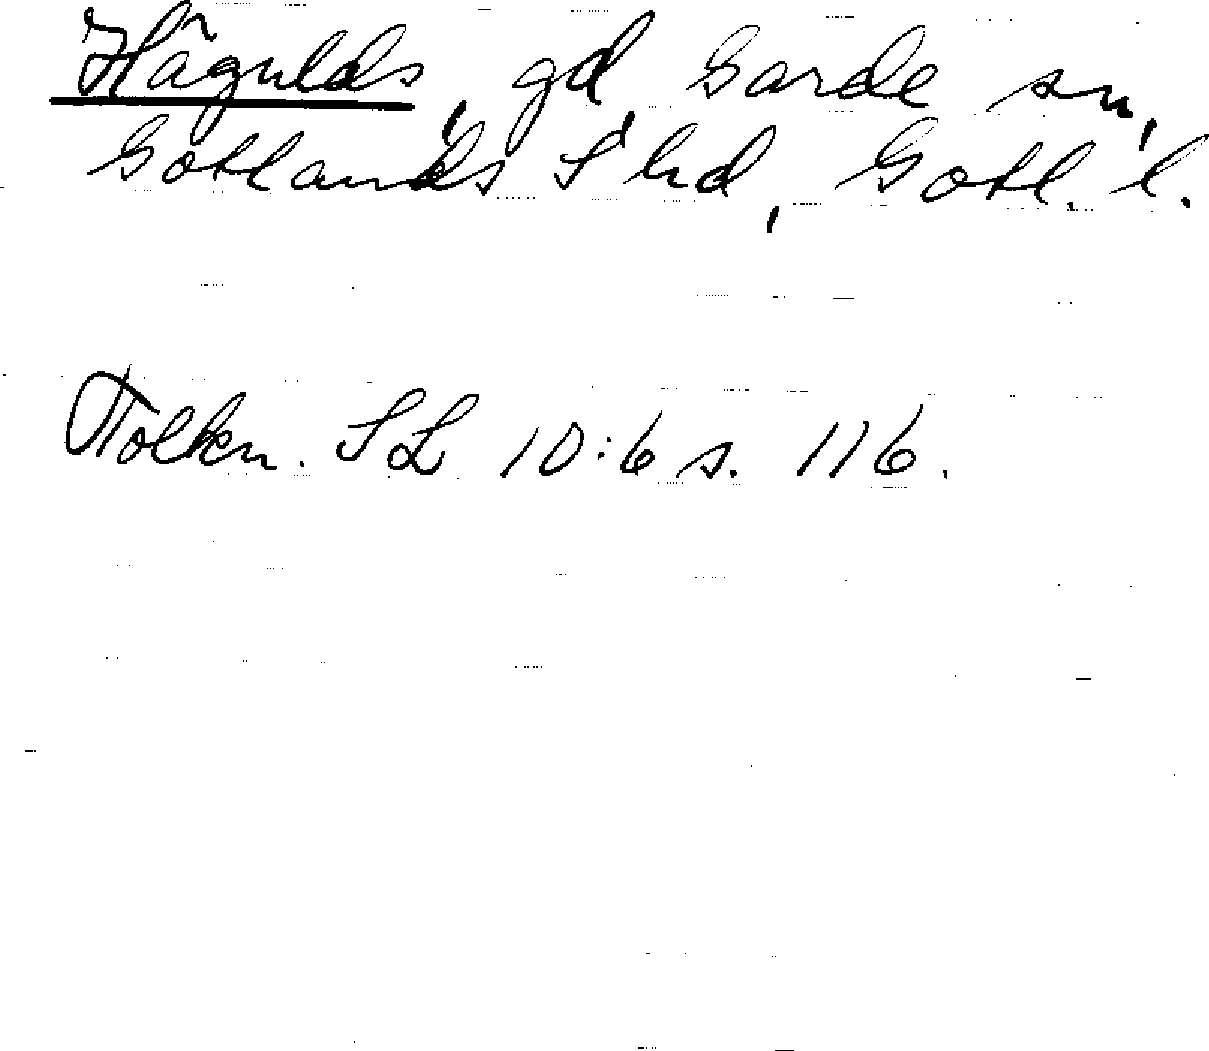 Hägulds, gd, Garde sn,
Gotlands S hd, Gotl. l.
Tolkn. SL 10:6 s. 116.